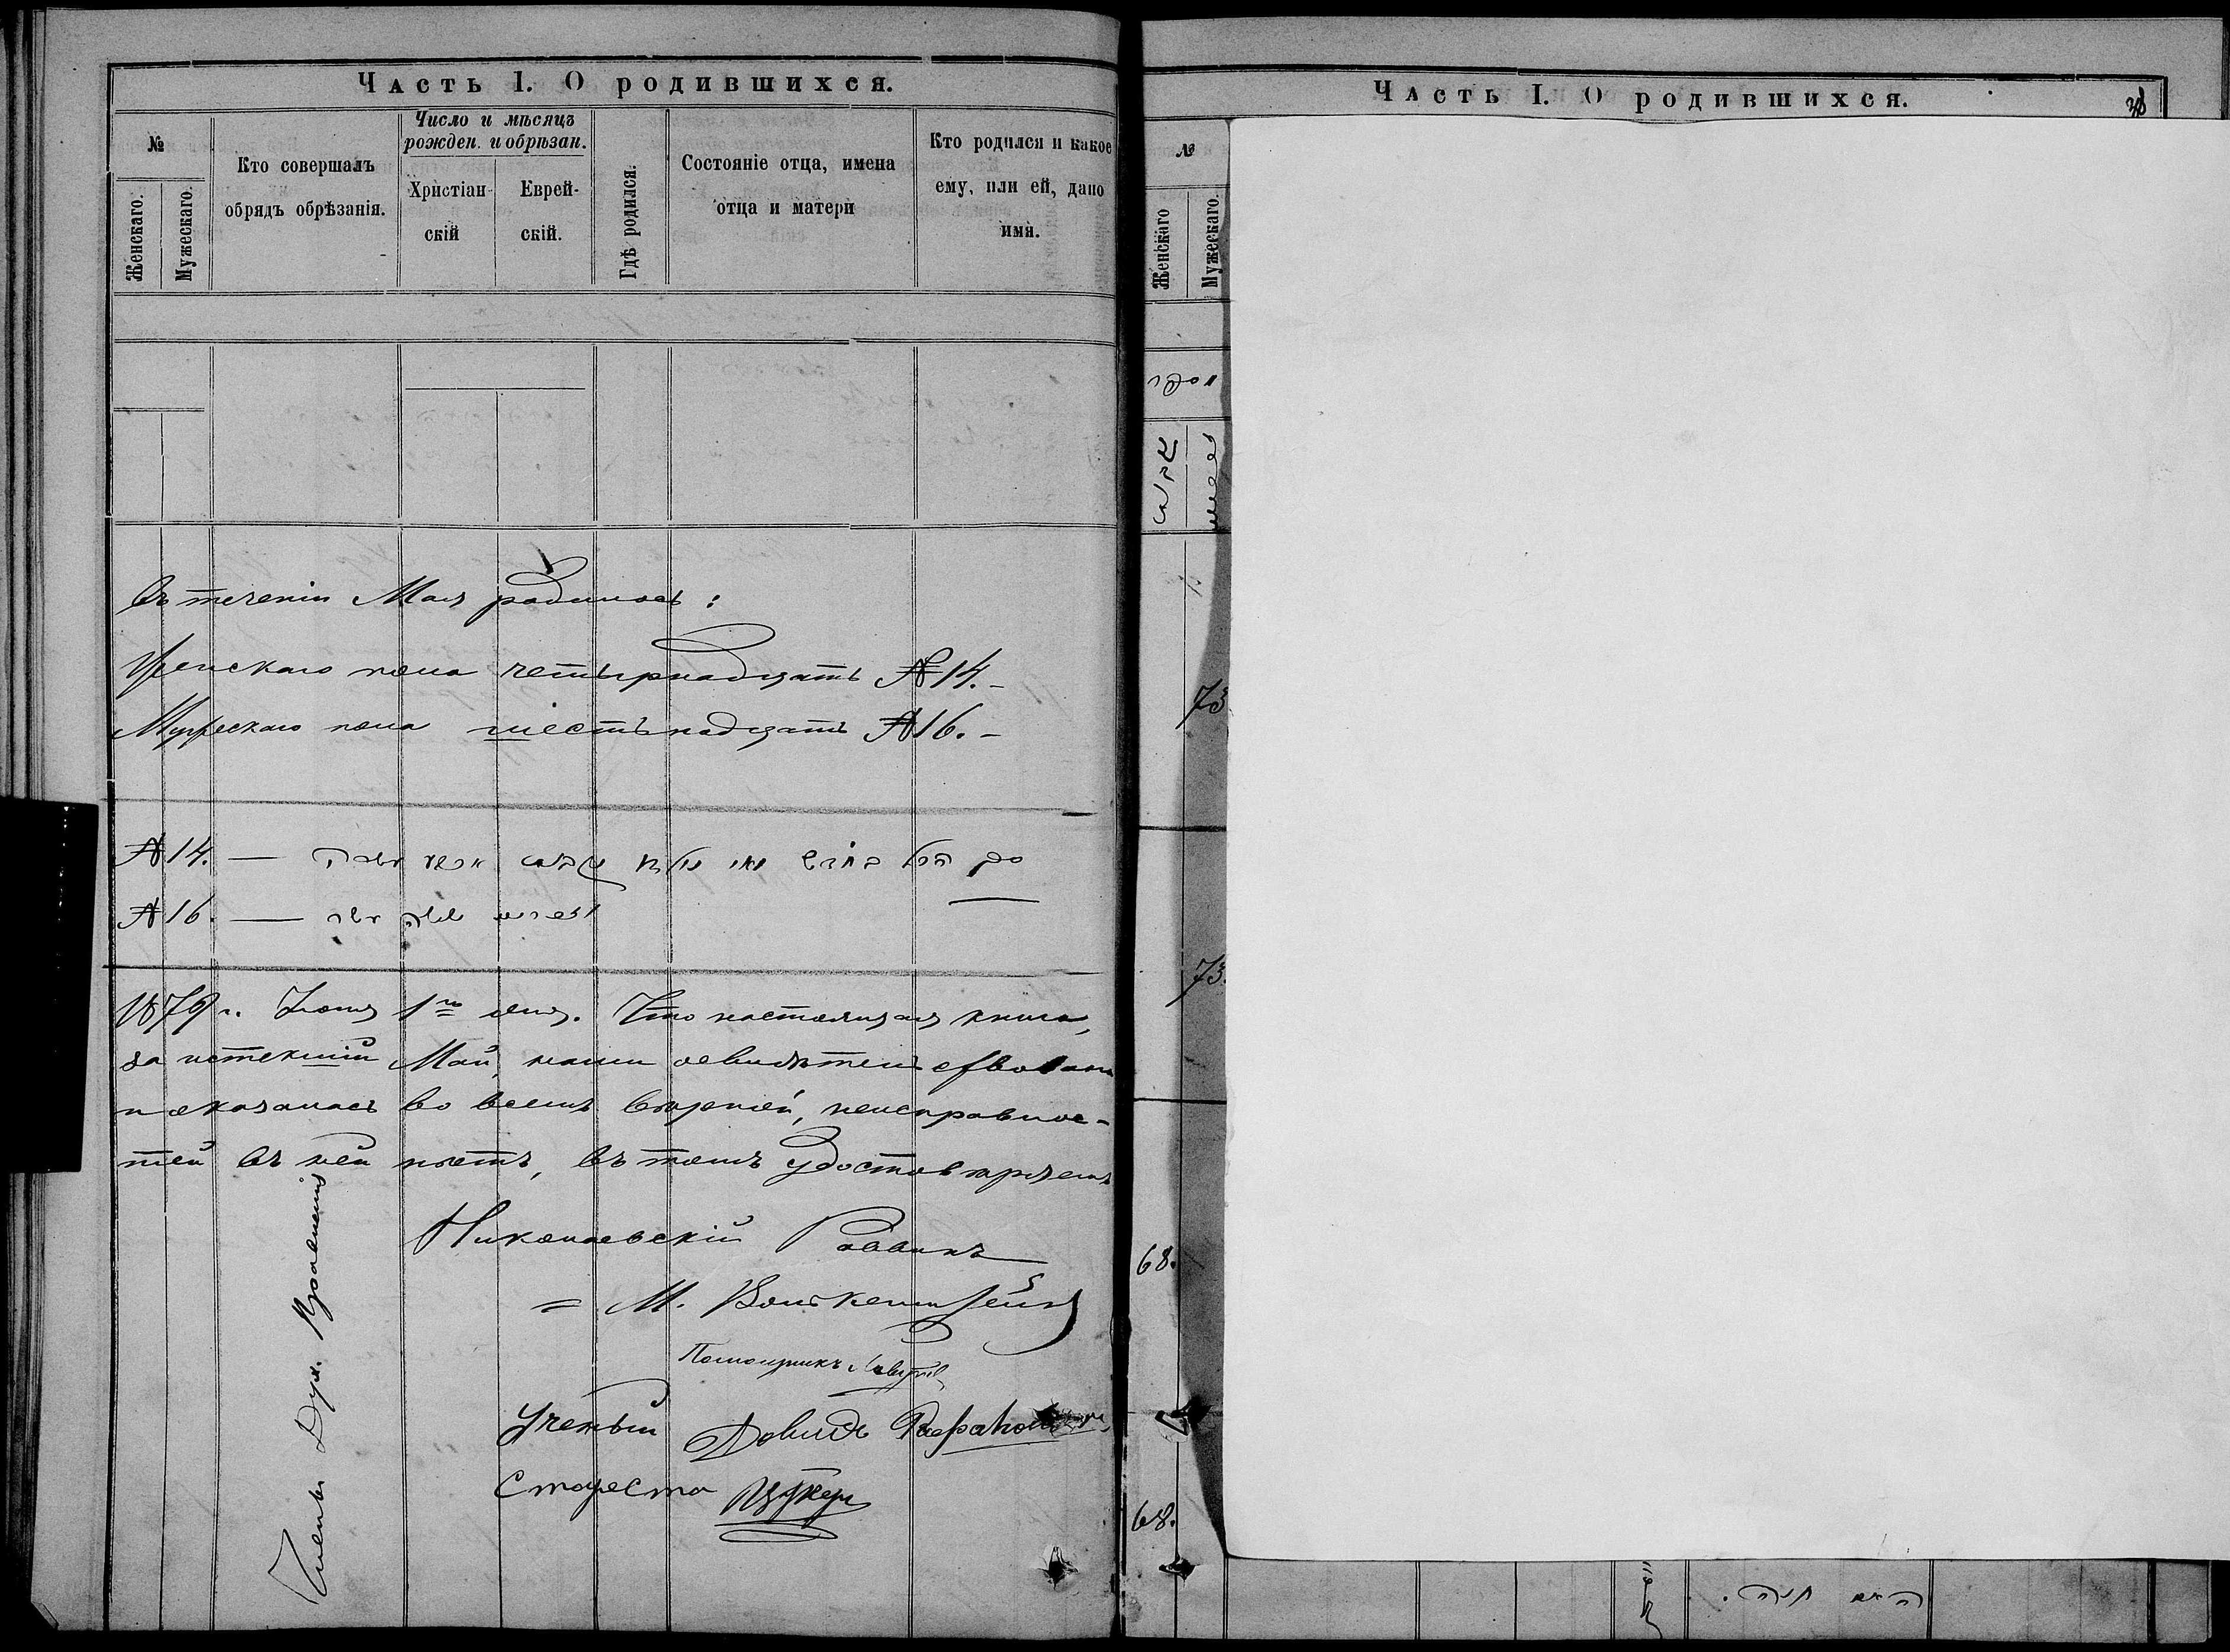 Часть I. О родившихся.
№
Женскаго.
Мужескаго.
Кто совершалъ
обрядъ обрѣзанія.
Число и мѣсяцъ
рожден. и обрѣзан.
Христіан-
скій
Еврей-
скій.
Гдѣ родился.
Состояніе отца, имена
отца и матери
Кто родился и какое
ему, или ей, дано
имя.
Въ теченіи Мая родилось:
Женскаго пола четырнадцать № 14.-
Мужескаго пола шестьнадцать № 16.-
№ 14. —
№ 16. —
1879 г. Іюня 1го дня. Что настоящая книга,
за истекшій Май, нами освидѣтельствована
и оказалась во всемъ вѣрной, неисправнос-
тей въ ней нѣтъ, въ томъ удостовѣряемъ
Николаевскій Раввинъ
= М. Волькенштейнъ
Помощникъ
Ученый Довидъ
Староста Цукер
Члены Дух. Правленія
Часть I. О родившихся.
№
Женскаго
Мужескаго.
73
73.
68.
68.